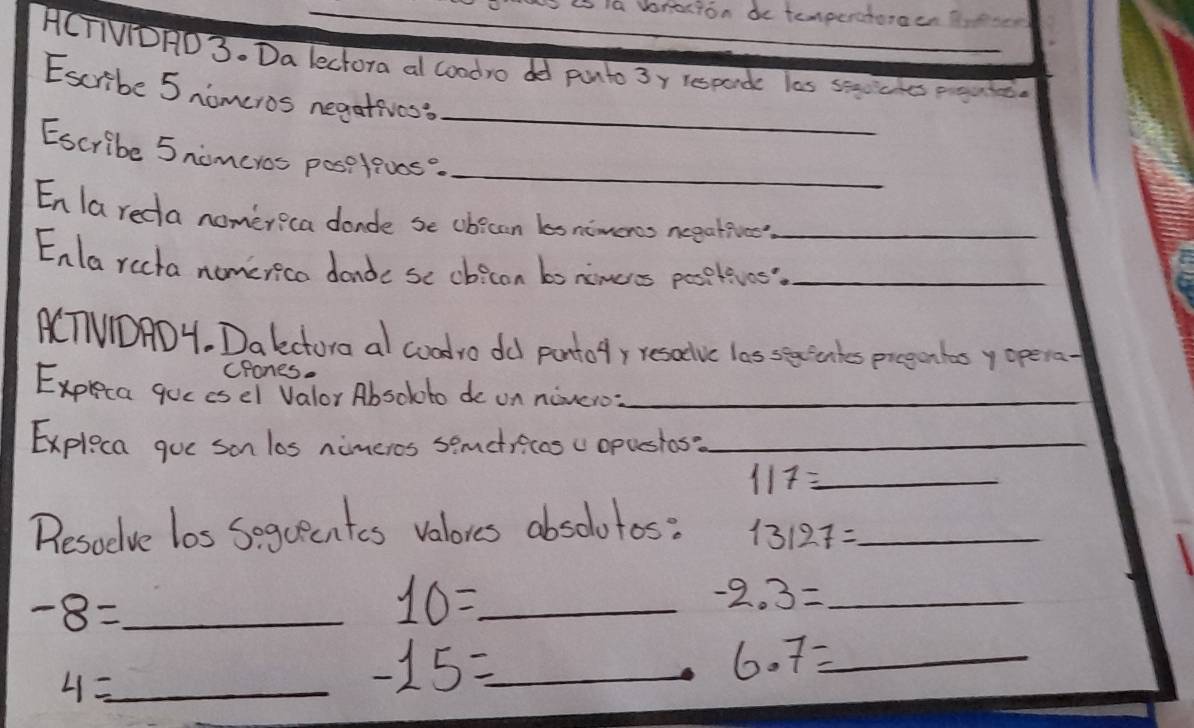 es la variación de temperatura en
ACTIVIDAD 3. Da lectura al cuadro del punto 3 y responde las siguientes preguntas.
Escribe 5 números negativos:
Escribe 5 números positivos:
En la recta numérica donde se ubican los números negativos:
En la recta numérica donde se ubican los números positivos:
ACTIVIDAD 4. Da lectura al cuadro del punto 4 y resuelve las siguientes preguntas y opera-
ciones.
Explica que es el Valor Absoluto de un número:
Explica que son los números simétricos u opuestos:
117=
Resuelve los Siguientes valores absolutos: 13127=
-8= 10= -2.3=
4= -15= . 6.7=